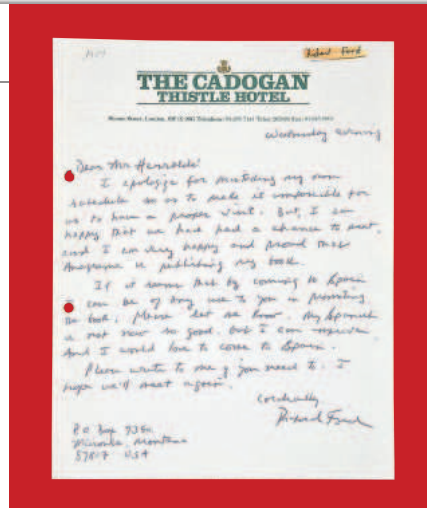 Richard Ford
THE CADOGAN
THISTLE HOTEL
Sloane Street, London, Telephone
Wednesday evening
Dear Mr Herralde:
I apologize for mistaking my own
schedule so as to make it impossible for
us to have a proper visit. But, I am
happy that we had had a chance to meet,
and I am very happy and proud that
Anagrama is publishing my book.
If it seems that by coming to Spain
I can be of any use to you in promoting
the book, please let me know. My Spanish
is not now so good, but I can improve.
And I would love to come to Spain.
Please write to me if you need to. I
hope we'll meet again.
Cordially
Richard Ford
P.O. Box
Missoula, Montana
59807 USA